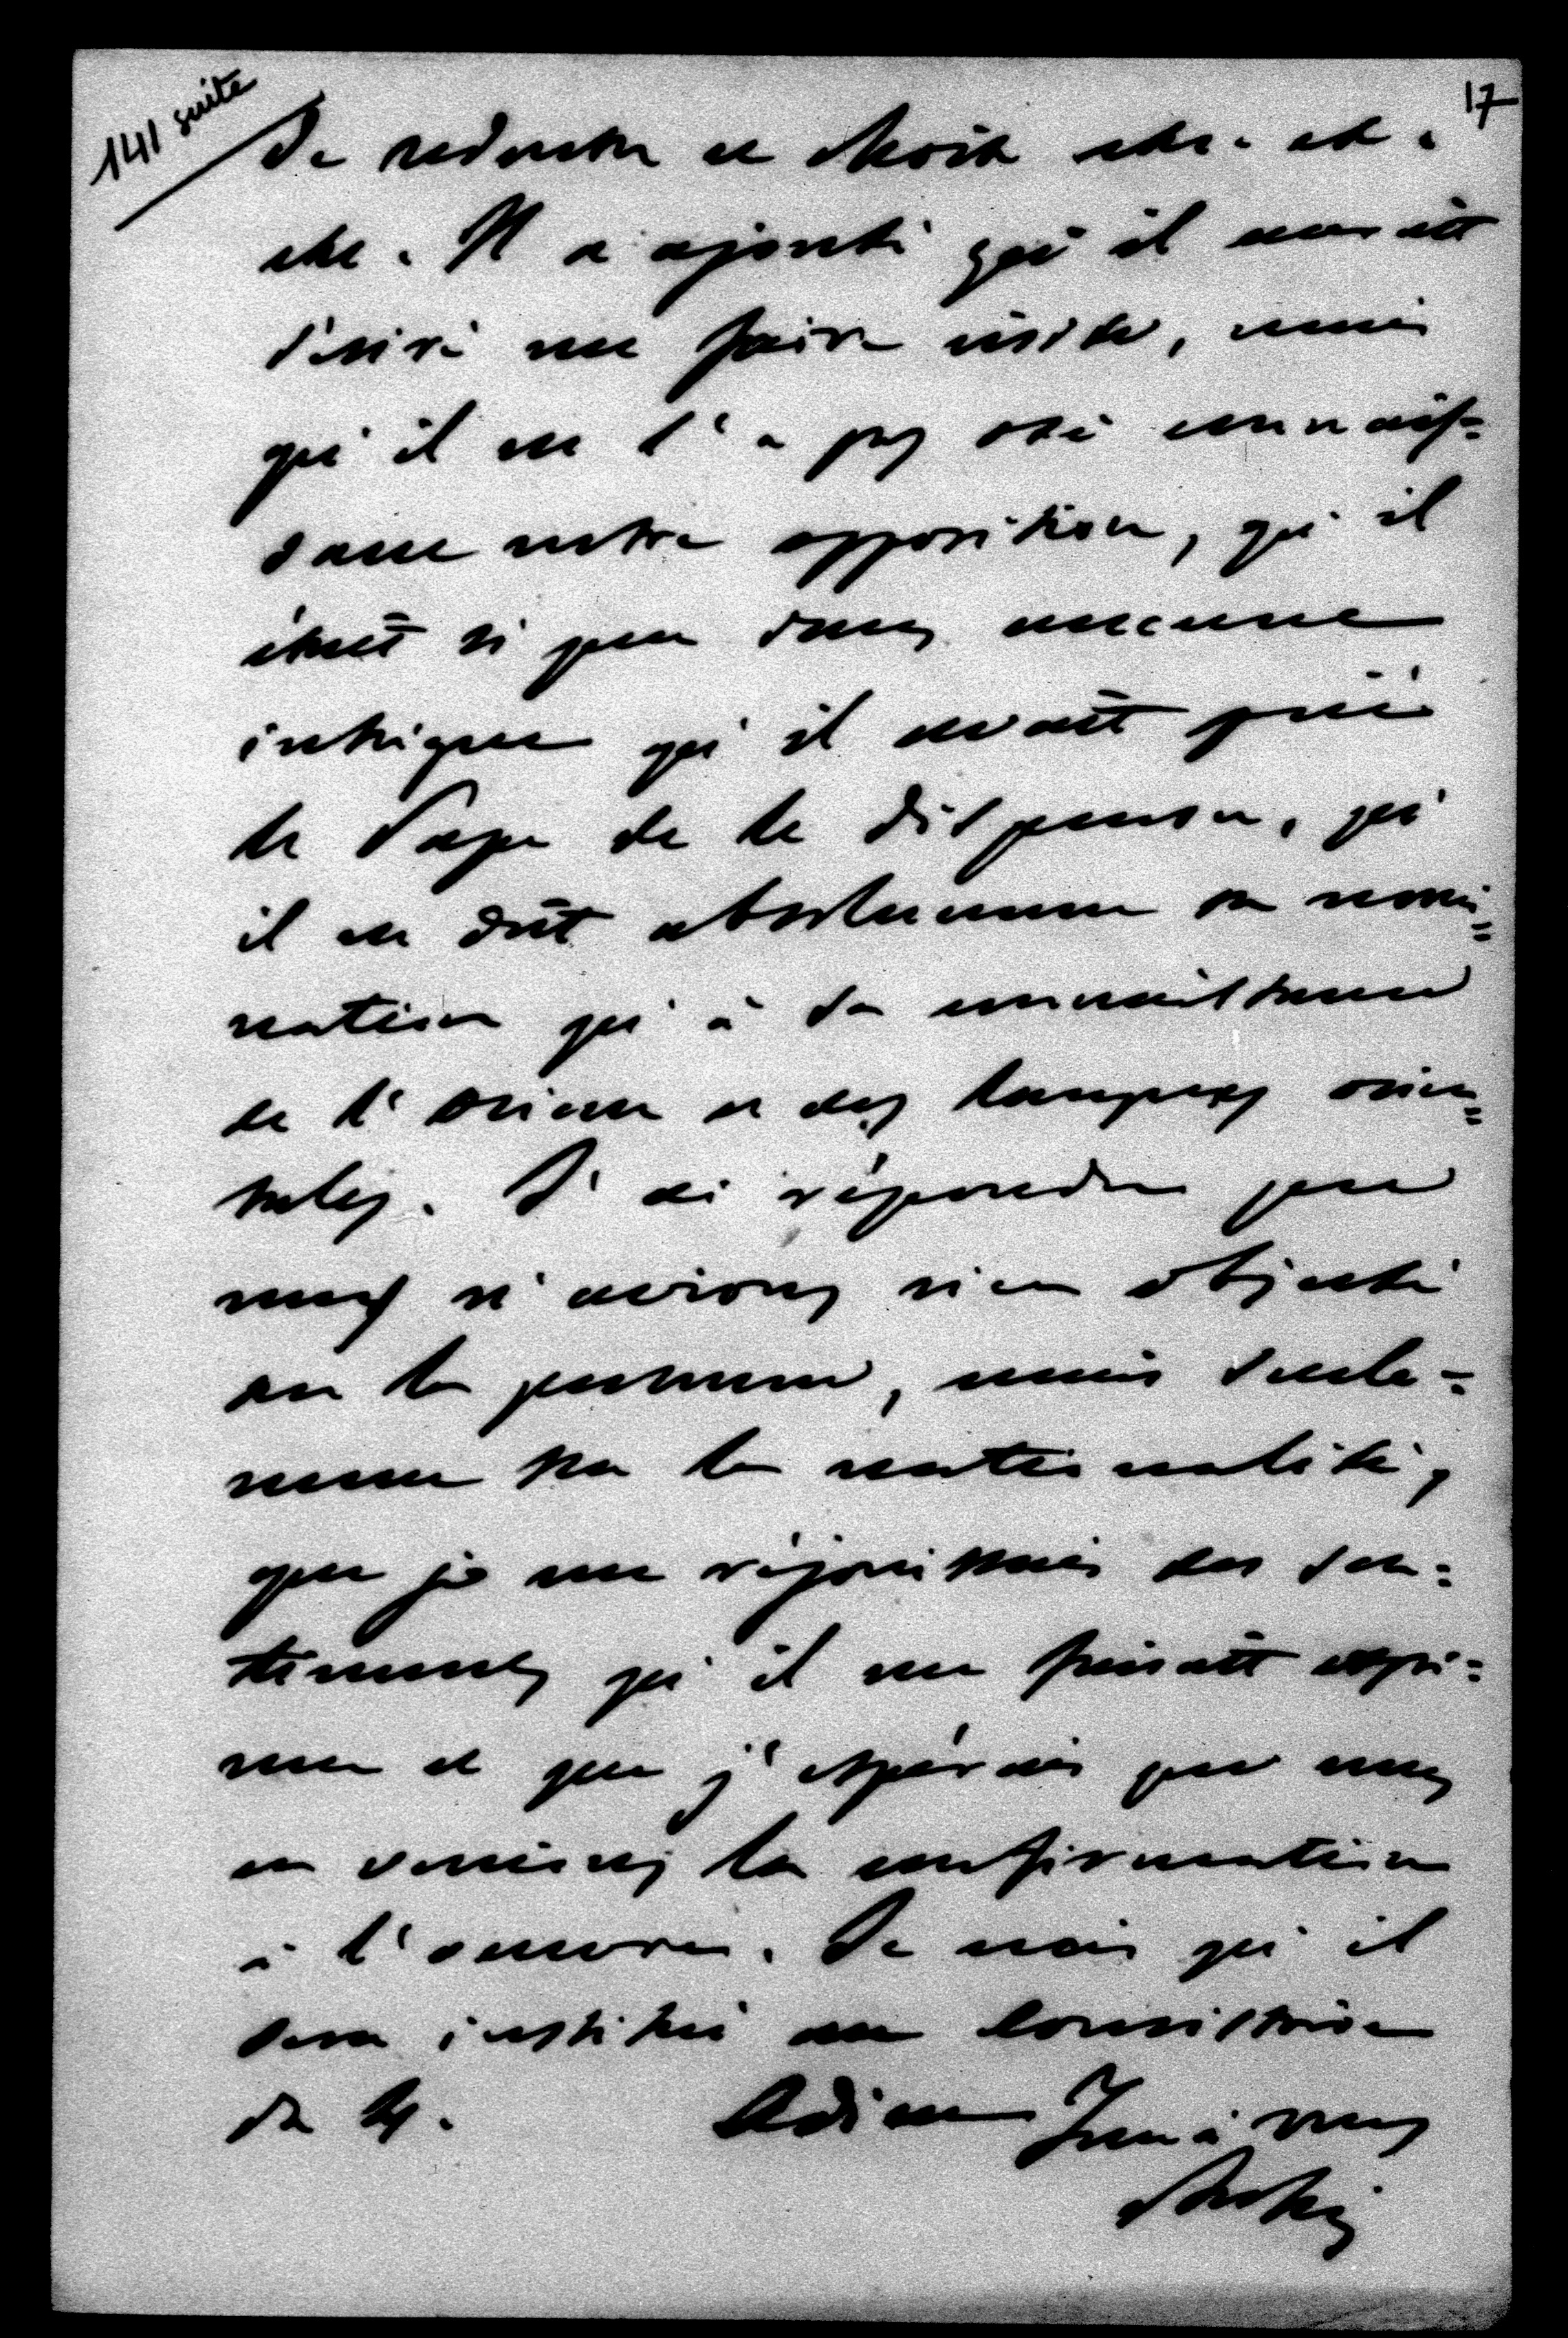 141 suite
17
de redouter ce choix etc. etc.
etc. Il a ajouté qu'il aurait
désiré me faire visite, mais
qu'il ne l'a pas osé connais-
sant notre opposition, qu'il
était si peu dans aucune
intrigue qu'il avait prié
le Pape de le dispenser, qu'
il ne doit absolument sa nomi=
nation qu'à sa connaissance
de l'Orient et des langues orien=
tales. J'ai répondu que
nous n'avions rien objecté
sur la personne, mais seule=
ment sur la nationalité,
que je me réjouissais des sen=
timents qu'il me faisait expri=
mer et que j'espérais que nous
en verrions la confirmation
à l'oeuvre. Je crois qu'il
sera institué au Consistoire
du 4. Adieu Tout à vous